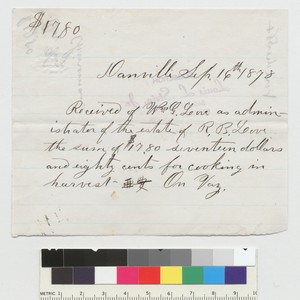 $17.80
Danville Sep. 16th 1873
Received of W. Q. Love as admin-
istrator of the estate of R B Love
the sum of $17.80 seventeen dollars
and eighty cents for cooking in
harvest - On Yaz.